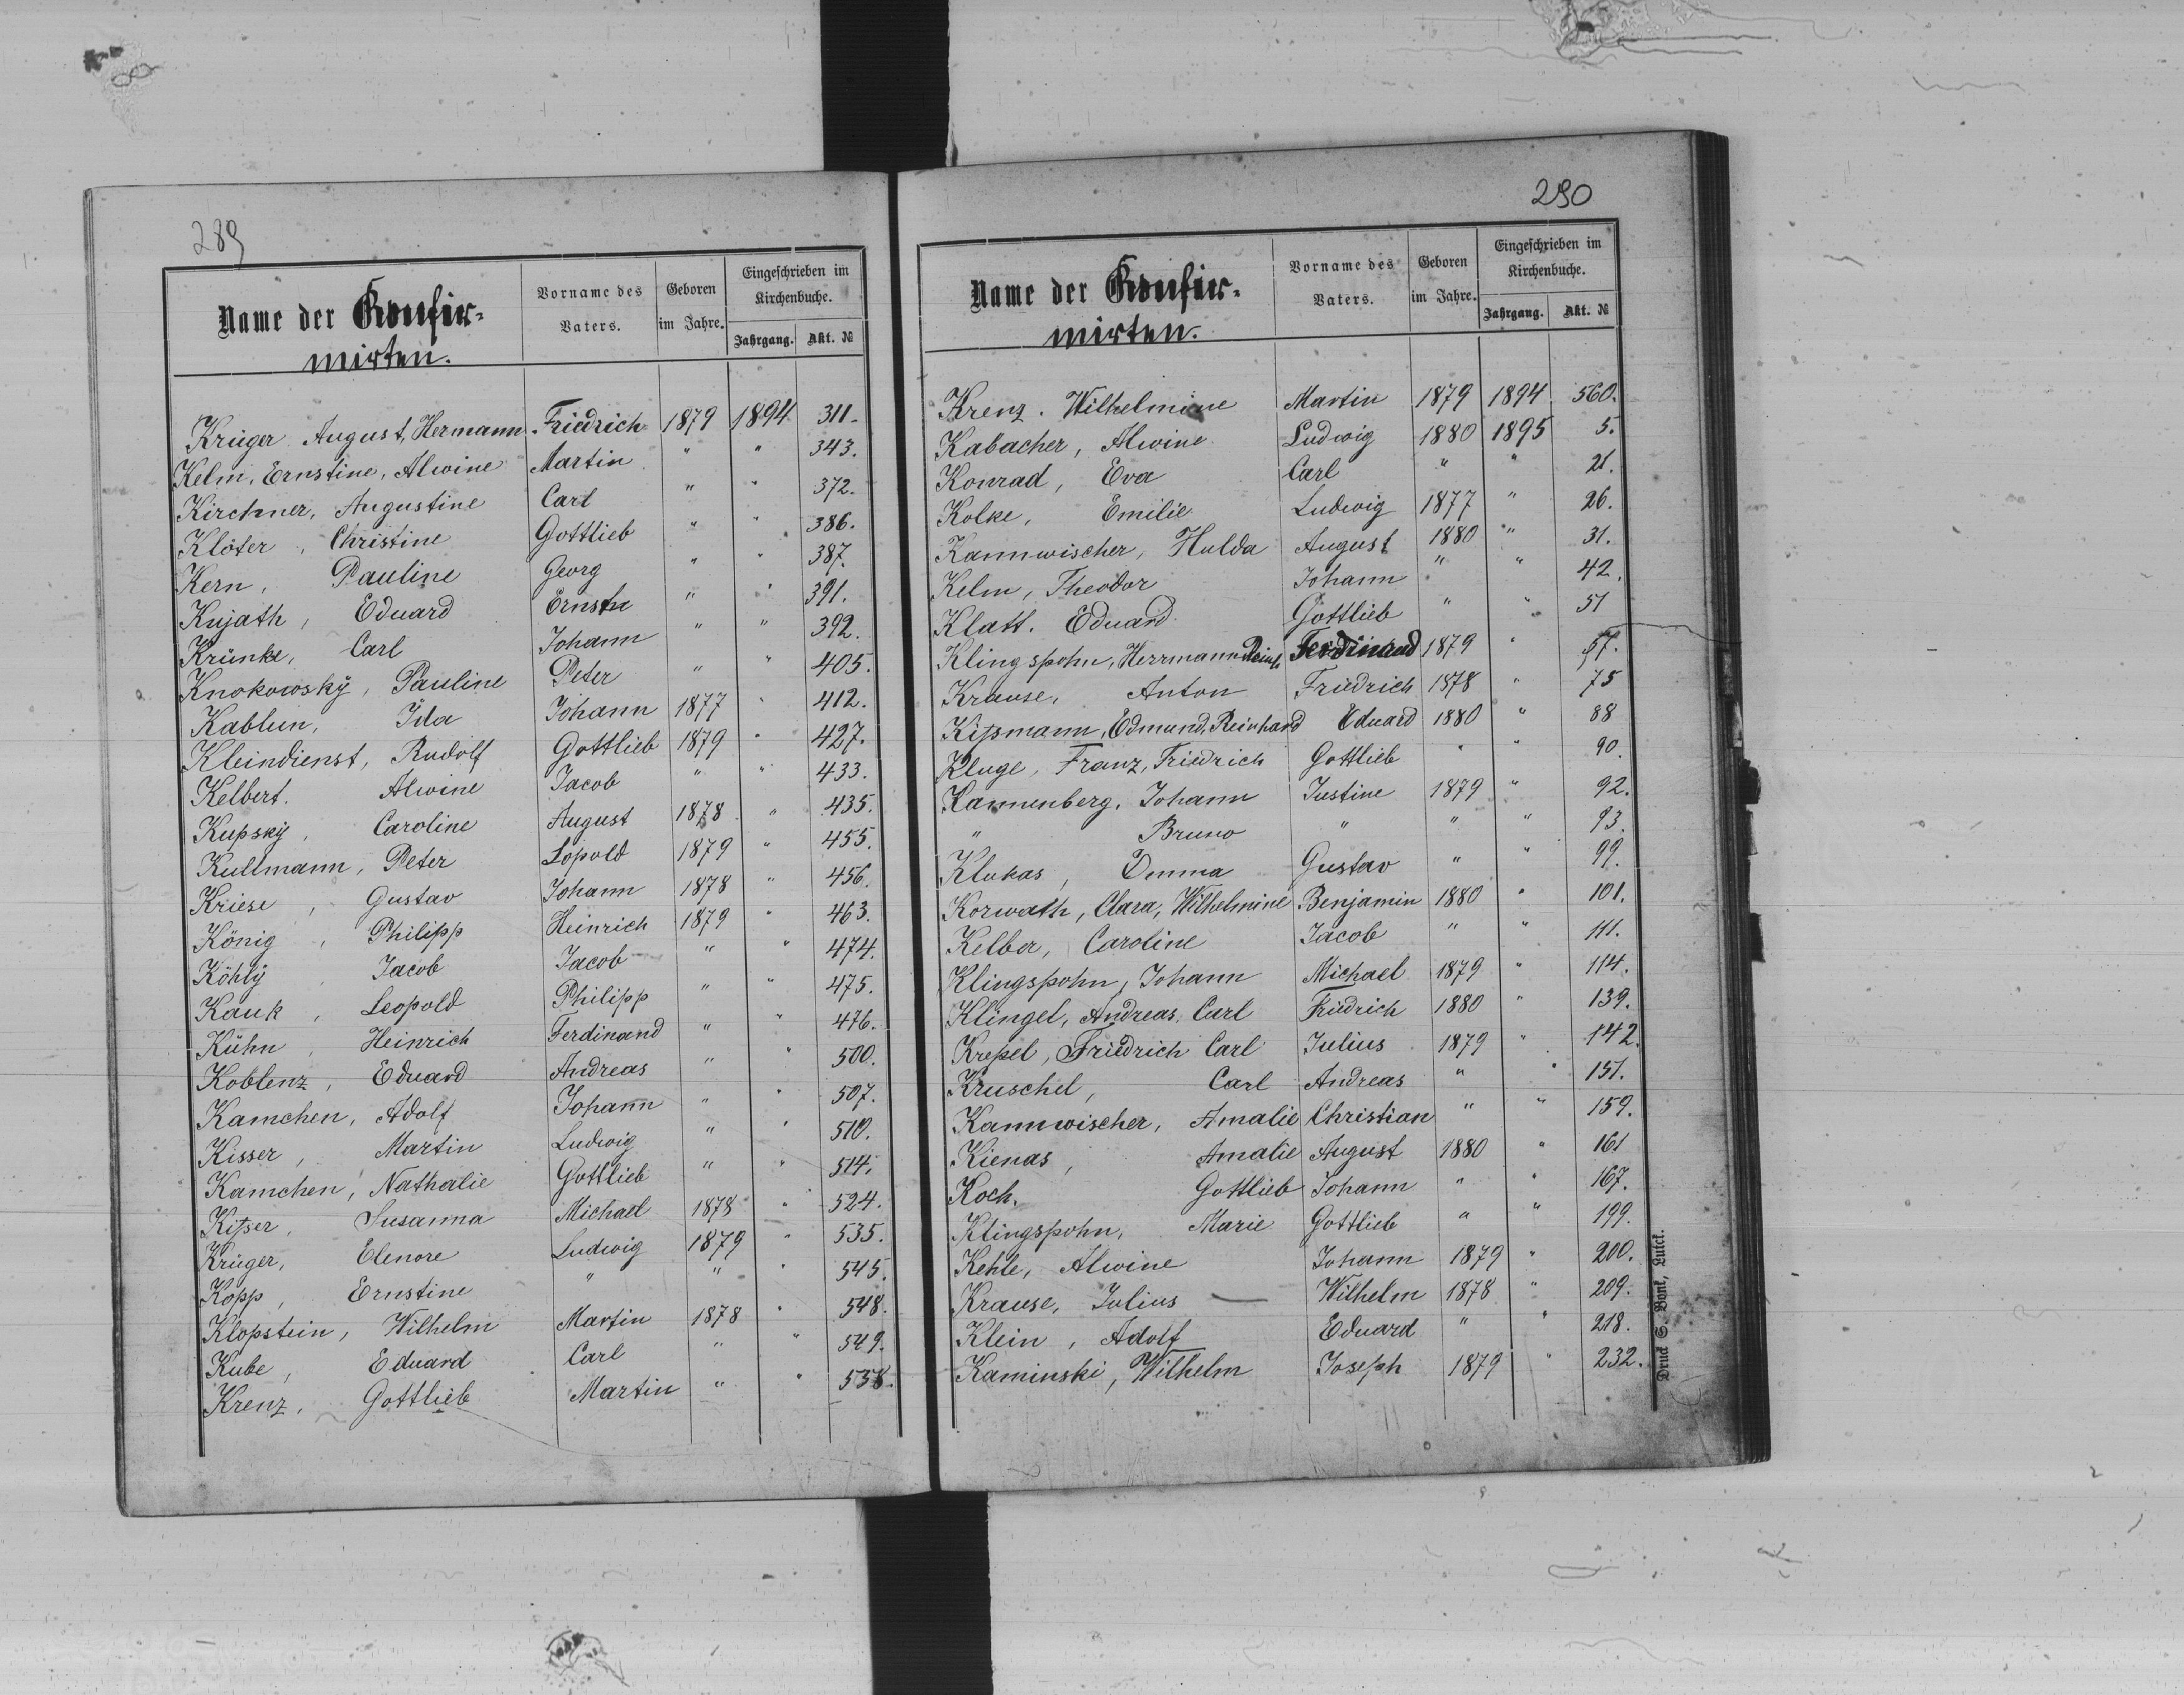 289
Name der Konfir-
mirten.
Vorname des Vaters.
Geboren im Jahre.
Eingeschrieben im Kirchenbuche.
Jahrgang. Akt. №
Krüger August, Hermann Friedrich 1879 1894 311.
Kelm, Ernstine, Alwine Martin " " 343.
Kirchner, Augustine Carl " " 372.
Klöter, Christine Gottlieb " " 386.
Kern, Pauline Georg " " 387.
Kujath, Eduard Ernstn " " 391.
Krünke, Carl Johann " " 392.
Knokowskÿ, Pauline Peter " " 405.
Kablun, Ida Johann 1877 " 412.
Kleindienst, Rudolf Gottlieb 1879 " 427.
Kelbert. Alwine Jacob " " 433.
Kupskÿ, Caroline August 1878 " 435.
Kullmann, Peter Lopold 1879 " 455.
Kriese, Gustav Johann 1878 " 456.
König, Philipp Heinrich 1879 " 463.
Köhlÿ, Jacob Jacob " " 474.
Kauk, Leopold Philipp " " 475.
Kühn, Heinrich Ferdinand " " 476.
Koblenz, Eduard Andreas " " 500.
Kamchen, Adolf Johann " " 507.
Kisser, Martin Ludwig " " 510.
Kamchen, Nathalie Gottlieb " " 514.
Kißer, Susanna Michael 1878 " 524.
Krüger, Elenore Ludwig 1879 " 535.
Kopp, Ernstine " " " 545.
Klopstein, Wilhelm Martin 1878 " 548.
Kube, Eduard Carl " " 549.
Krenz, Gottlieb Martin " " 558.
290
Name der Konfir-
mirten.
Vorname des Vaters.
Geboren im Jahre.
Eingeschrieben im Kirchenbuche.
Jahrgang. Akt. №
Krenz. Wilhelmine Martin 1879 1894 560.
Kabacher, Alwine Ludwig 1880 1895 5.
Konrad, Eva Carl " " 21.
Kolke, Emilie Ludwig 1877 " 26.
Kannwischer, Hulda August 1880 " 31.
Kelm, Theodor Johann " " 42.
Klatt. Eduard Gottlieb " " 51
Klingspohn, Herrmann Ferdinand 1879 " 57.
Krause, Anton Friedrich 1878 " 75
Kißmann, Edmund, Reinhard Eduard 1880 " 88
Kluge, Franz, Friedrich Gottlieb " " 90.
Kannenberg, Johann Justine 1879 " 92.
" Bruno " " " 93.
Klukas, Emma Gustav " " 99.
Korwath, Clara, Wilhelmine Benjamin 1880 " 101.
Kelber, Caroline Jacob " " 111.
Klingspohn, Johann Michael 1879 " 114.
Klingel, Andreas, Carl Friedrich 1880 " 139.
Kreßel, Friedrich Carl Julius 1879 " 142.
Kruschel, Carl Andreas " " 151.
Kannwischer, Amalie Christian " " 159.
Kienas, Amalie August 1880 " 161
Koch, Gottlieb Johann " " 167.
Klingspohn, Marie Gottlieb " " 199.
Kehle, Alwine Johann 1879 " 200.
Krause, Julius — Wilhelm 1878 " 209.
Klein, Adolf Eduard " " 218.
Kaminski, Wilhelm Joseph 1879 " 232.
Druck S. Bank, Lutck.